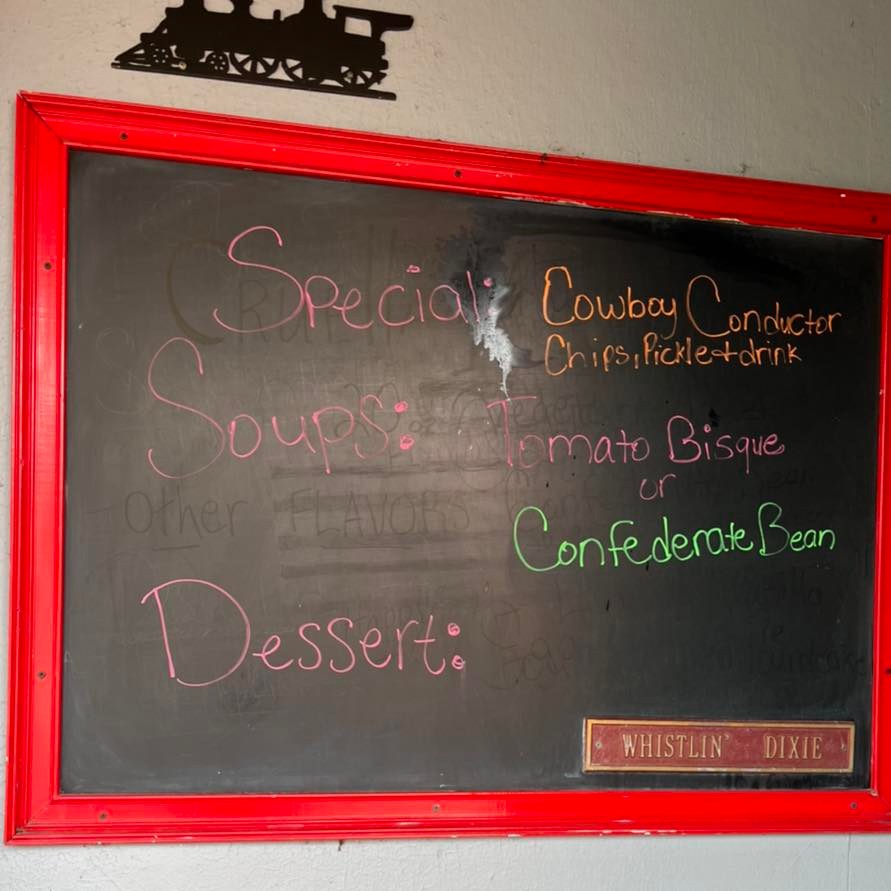 Special: Cowboy Conductor
Chips, Pickle + drink
Soups: Tomato Bisque
or
Confederate Bean
Other FLAVORS
Dessert:
WHISTLIN' DIXIE